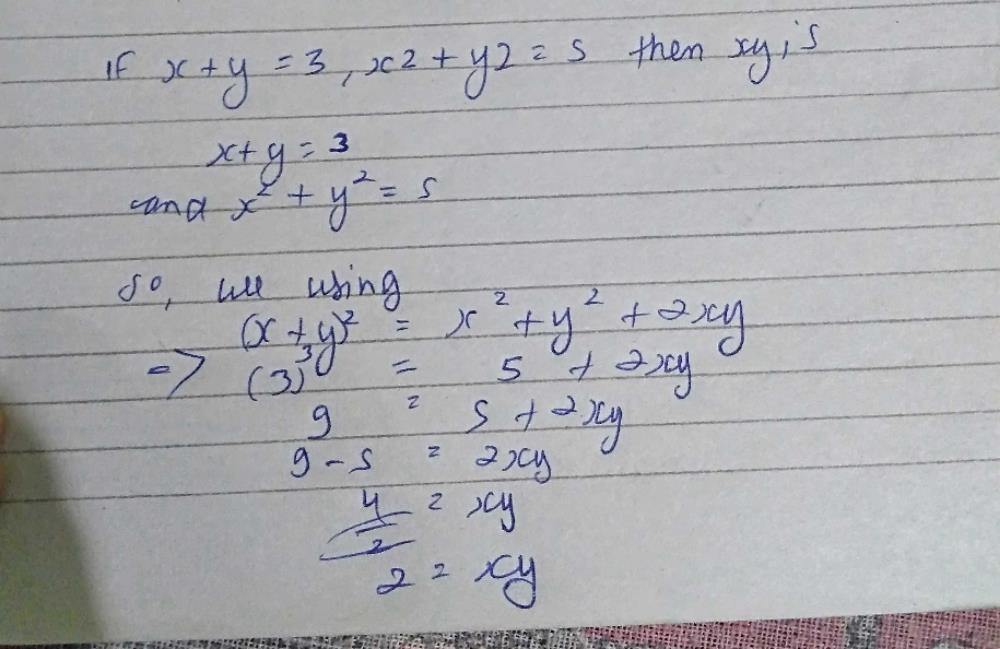 If x + y = 3, x2 + y2 = 5 then xy is
x + y = 3
and x² + y² = 5
so, we using
(x + y)² = x² + y² + 2xy
=> (3)³ = 5 + 2xy
9 = 5 + 2xy
9 - 5 = 2xy
4/2 = xy
2 = xy